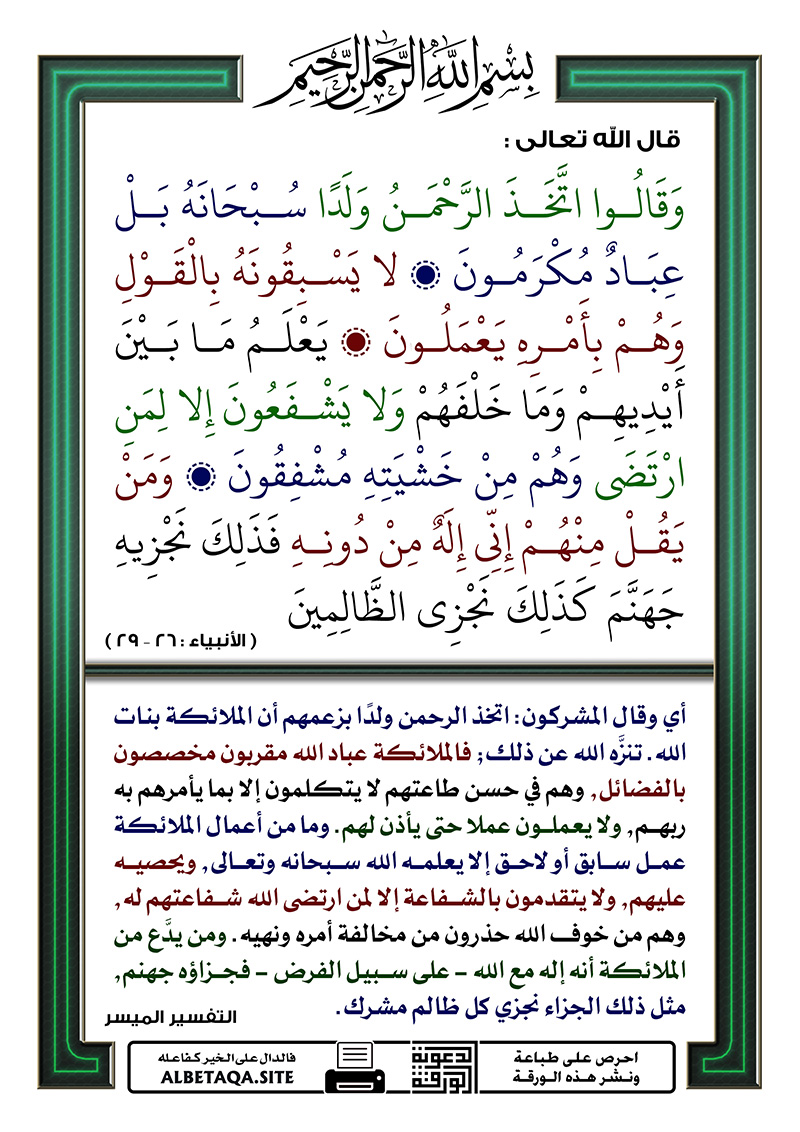 بِسْمِ اللَّهِ الرَّحْمَنِ الرَّحِيمِ
قال الله تعالى :
وَقَالُوا اتَّخَذَ الرَّحْمَنُ وَلَدًا سُبْحَانَهُ بَلْ
عِبَادٌ مُكْرَمُونَ ۞ لا يَسْبِقُونَهُ بِالْقَوْلِ
وَهُمْ بِأَمْرِهِ يَعْمَلُونَ ۞ يَعْلَمُ مَا بَيْنَ
أَيْدِيهِمْ وَمَا خَلْفَهُمْ وَلا يَشْفَعُونَ إِلا لِمَنِ
ارْتَضَى وَهُمْ مِنْ خَشْيَتِهِ مُشْفِقُونَ ۞ وَمَنْ
يَقُلْ مِنْهُمْ إِنِّي إِلَهٌ مِنْ دُونِهِ فَذَلِكَ نَجْزِيهِ
جَهَنَّمَ كَذَلِكَ نَجْزِي الظَّالِمِينَ
( الأنبياء : ٢٦ - ٢٩ )
أي وقال المشركون: اتخذ الرحمن ولدًا بزعمهم أن الملائكة بنات
الله. تنزَّه الله عن ذلك; فالملائكة عباد الله مقربون مخصصون
بالفضائل, وهم في حسن طاعتهم لا يتكلمون إلا بما يأمرهم به
ربهم, ولا يعملون عملا حتى يأذن لهم. وما من أعمال الملائكة
عمل سابق أو لاحق إلا يعلمه الله سبحانه وتعالى, ويحصيه
عليهم, ولا يتقدمون بالشفاعة إلا لمن ارتضى الله شفاعتهم له,
وهم من خوف الله حذرون من مخالفة أمره ونهيه. ومن يدَّع من
الملائكة أنه إله مع الله - على سبيل الفرض - فجزاؤه جهنم,
مثل ذلك الجزاء نجزي كل ظالم مشرك.
التفسير الميسر
احرص على طباعة
ونشر هذه الورقة
الورقة الدعوية
فالدال على الخير كفاعله
ALBETAQA.SITE